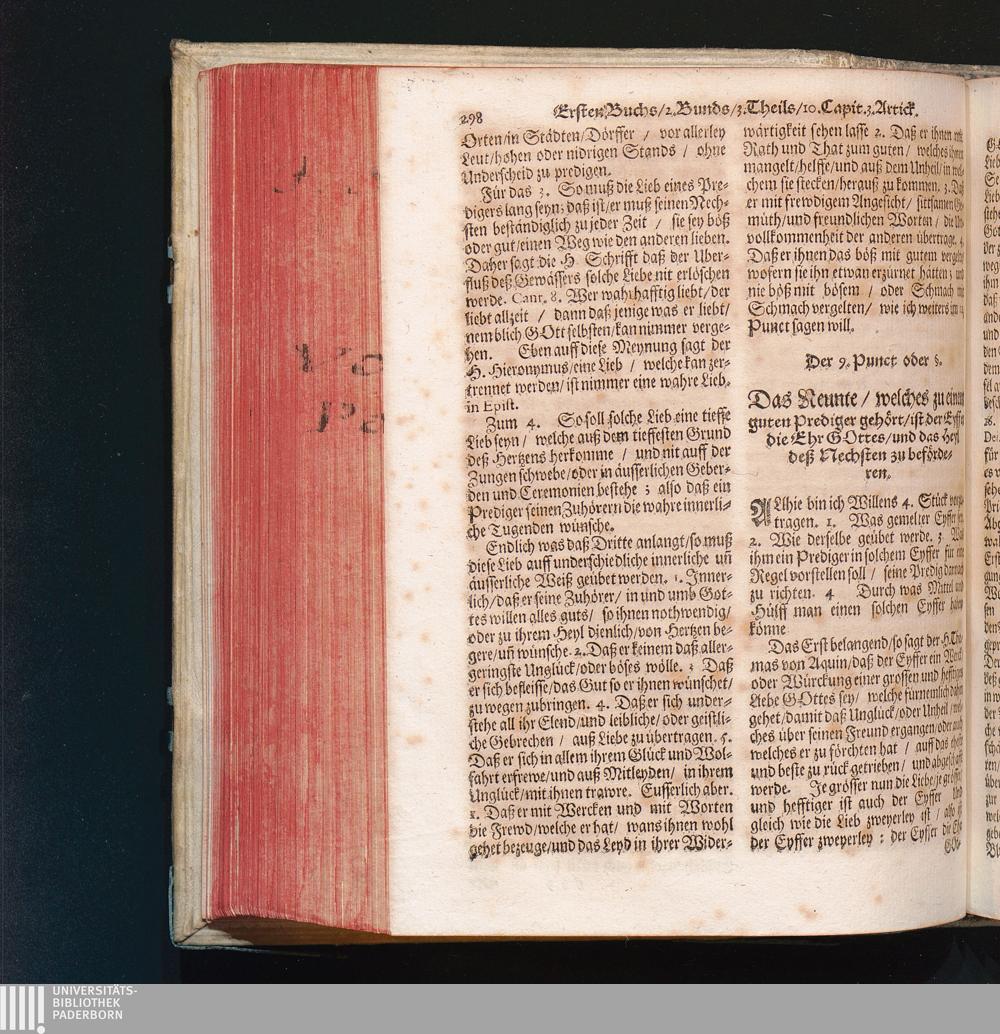 298
Ersten Buchs/2. Bunds/3. Theils/10. Capit. 3. Artick.
Orten/in Städten/Dörffer / vor allerley
Leut/hohen oder nidrigen Stands / ohne
Underscheid zu predigen.
Für das 3. So muß die Lieb eines Pre-
digers lang seyn; daß ist/er muß seinen Nech-
sten beständiglich zu jeder Zeit / sie sey böß
oder gut/einen Weg wie den anderen lieben.
Daher sagt die H. Schrifft daß der Uber-
fluß deß Gewässers solche Liebe nit erlöschen
werde. Cant. 8. Wer wahrhafftig liebt/der
liebt allzeit / dann daß jenige was er liebt/
nemblich GOtt selbsten/kan nimmer verge-
hen. Eben auff diese Meynung sagt der
H. Hieronymus/eine Lieb / welche kan zer-
trennet werden/ist nimmer eine wahre Lieb.
in Epist.
Zum 4. So soll solche Lieb eine tieffe
Lieb seyn / welche auß dem tieffesten Grund
deß Hertzens herkomme / und nit auff der
Zungen schwebe/oder in äusserlichen Geber-
den und Ceremonien bestehe ; also daß ein
Prediger seinen Zuhörern die wahre innerli-
che Tugenden wünsche.
Endlich was daß Dritte anlangt/so muß
diese Lieb auff underschiedliche innerliche uñ
äusserliche Weiß geübet werden. 1. Inner-
lich/daß er seine Zuhörer/in und umb Got-
tes willen alles guts/ so ihnen nothwendig/
oder zu ihrem Heyl dienlich/von Hertzen be-
gere/uñ wünsche. 2. Daß er keinem daß aller-
geringste Unglück/oder böses wölle. 3 Daß
er sich befleisse/das Gut so er ihnen wünschet/
zu wegen zubringen. 4. Daß er sich under-
stehe all ihr Elend/und leibliche/oder geistli-
che Gebrechen / auß Liebe zu übertragen. 5.
Daß er sich in allem ihrem Glück und Wol-
fahrt erfrewe/und auß Mitleyden/ in ihrem
Unglück/mit ihnen trawre. Eusserlich aber.
1. Daß er mit Wercken und mit Worten
die Frewd/welche er hat/ wans ihnen wohl
gehet bezeuge/und das Leyd in ihrer Wider-
wärtigkeit sehen lasse 2. Daß er ihnen mit
Rath und That zum guten / welches ihnen
mangelt/helffe/und auß dem Unheil/in wel-
chem sie stecken/herauß zu kommen. 3. Daß
er mit frewdigem Angesicht/ sittsamen Ge-
müth/und freundlichen Worten / die Un-
vollkommenheit der anderen übertrage. 4.
Daß er ihnen das böß mit gutem vergelte
wofern sie ihn etwan erzürnet hätten; und
nie böß mit bösem / oder Schmach mit
Schmach vergelten/ wie ich weiters im
Punct sagen will.
Der 9. Punct oder §.
Das Neunte / welches zu einem
guten Prediger gehört/ist der Eyffer
die Ehr GOttes/und das Heyl
deß Nechsten zu beförde-
ren.
ALlhie bin ich Willens 4. Stück vorzu-
tragen. 1. Was gemelter Eyffer sey.
2. Wie derselbe geübet werde. 3 Was
ihm ein Prediger in solchem Eyffer für eine
Regel vorstellen soll / seine Predig darnach
zu richten. 4 Durch was Mittel und
Hülff man einen solchen Eyffer haben
könne
Das Erst belangend/so sagt der H. Tho-
mas von Aquin/daß der Eyffer ein Werck
oder Würckung einer grossen und hefftigen
Liebe GOttes sey/ welche fürnemlich dahin
gehet/damit daß Unglück/oder Unheil/wel-
ches über seinen Freund ergangen/oder auch
welches er zu förchten hat / auff das
und beste zu rück getrieben/ und abgeschafft
werde. Je grösser nun die Liebe/je grösser
und hefftiger ist auch der Eyffer Und
gleich wie die Lieb zweyerley ist / also ist
der Eyffer zweyerley : der Eyffer die Ehr
GOt-
UNIVERSITÄTS-
BIBLIOTHEK
PADERBORN